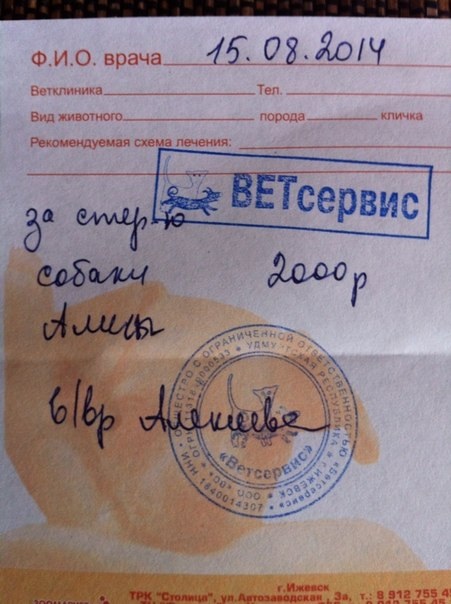 Ф.И.О. врача 15.08.2014
Ветклиника Тел.
Вид животного порода кличка
Рекомендуемая схема лечения:
ВЕТсервис
за стер-ю
собаки 2000р
Алисы
в/вр Алексеева
ОБЩЕСТВО С ОГРАНИЧЕННОЙ ОТВЕТСТВЕННОСТЬЮ «Ветсервис»
УДМУРТСКАЯ РЕСПУБЛИКА г. ИЖЕВСК
ИНН 1840014307
ООО
«Ветсервис»
г.Ижевск
ТРК "Столица", ул.Автозаводская , 3а, т.: 8 912 755 45